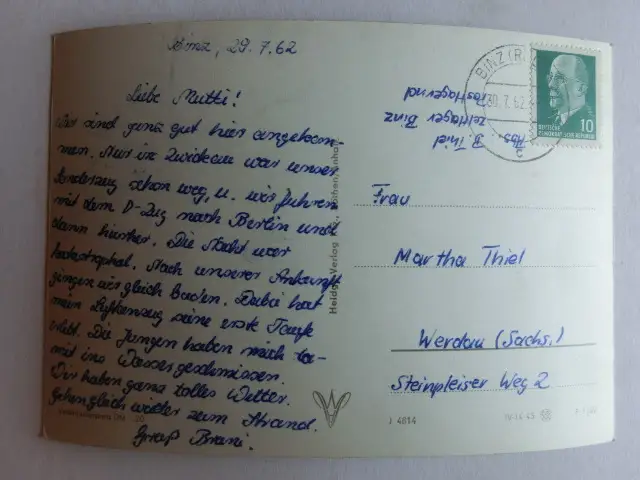 Binz, 29.7.62
Liebe Mutti!
Wir sind ganz gut hier angekom-
men. Nur in Zwickau war unser
Sonderzug schon weg, u. wir fuhren
mit dem D-Zug nach Berlin und
dann hierher. Die Nacht war
katastrophal. Nach unserer Ankunft
gingen wir gleich baden. Dabei hat
mein Luftanzug seine erste Taufe
erlebt. Die Jungen haben mich da-
mit ins Wasser geschmissen.
Wir haben ganz tolles Wetter.
Gehen gleich wieder zum Strand.
Gruß Brani.
Heidge-Verlag
BINZ (R
30.7.62
DEUTSCHE
DEMOKRATISCHE REPUBLIK
10
Abs.
B. Thiel
Zeltlager Binz
Frau
Martha Thiel
Werdau (Sachs.)
Steinpleiser Weg 2
J 4614